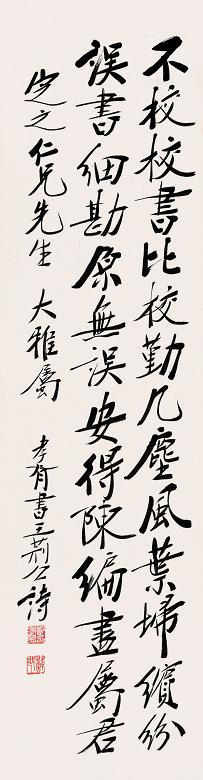 不校校書比校勤几塵風葉埽繽紛
誤書細勘原無誤安得陳編盡屬君
定之仁兄先生 大雅屬 孝胥書王荊公詩